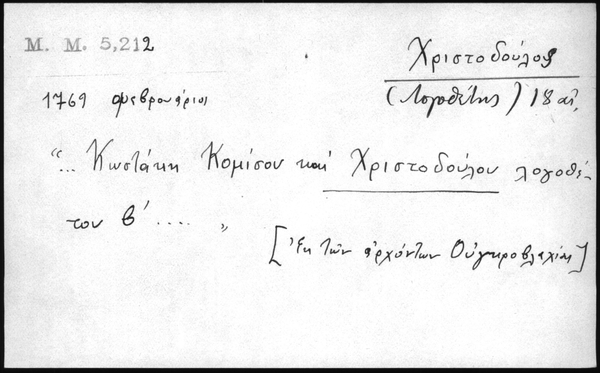 M. M. 5,212
Χριστοδούλος
(Λογοθέτης) 18 αἰ.
1769 φεβρουάριου
"... Κωστάκη Κομίσου καὶ Χριστοδούλου λογοθέ-
του β´ .... "
[Ἐκ τῶν ἀρχόντων Οὑγκροβλαχίας]